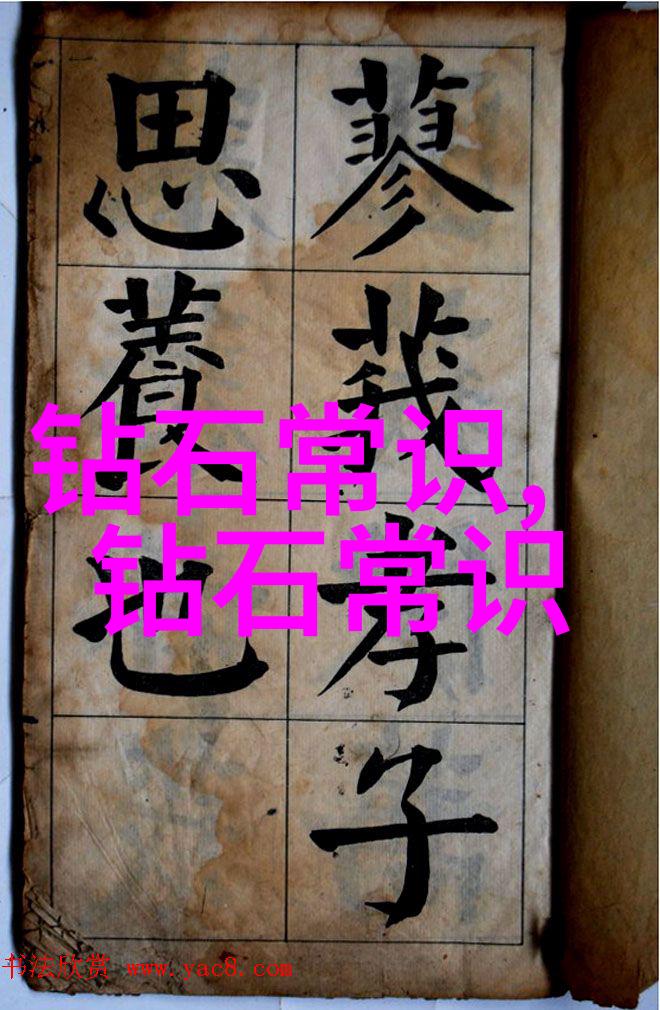 蓼莪孝子
思養也
钻石常识,
钻石常识
书法欣赏 www.yac8.com